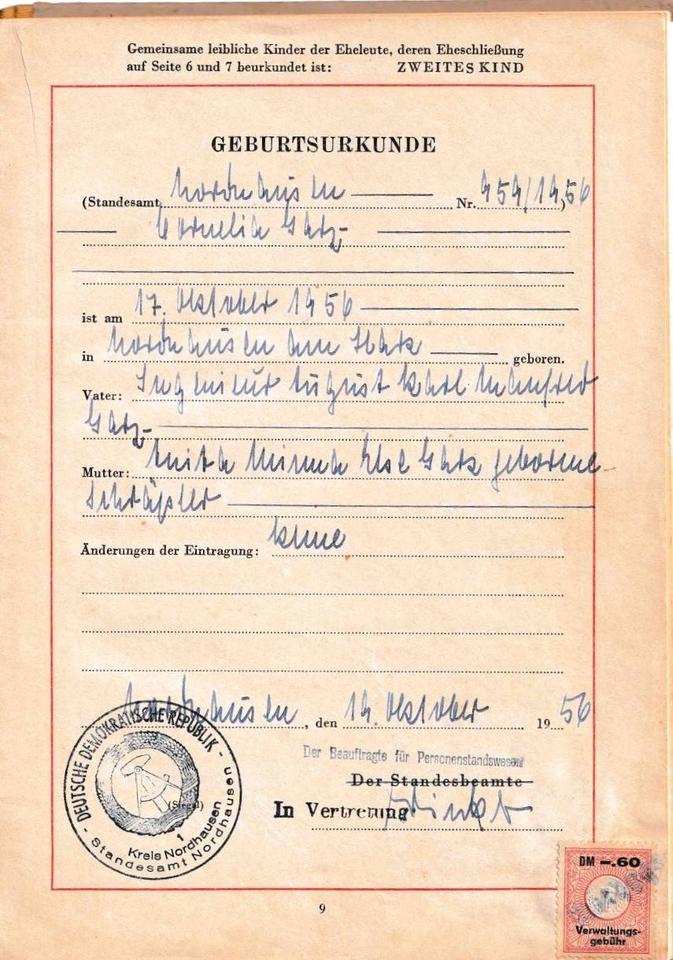 Gemeinsame leibliche Kinder der Eheleute, deren Eheschließung
auf Seite 6 und 7 beurkundet ist: ZWEITES KIND
GEBURTSURKUNDE
(Standesamt Nordhausen Nr. 954/1956)
Cornelia Garz
ist am 17. Oktober 1956
in Nordhausen am Harz geboren.
Vater: Ingenieur August Karl Manfred
Garz
Mutter: Anita Minna Else Garz geborene
Änderungen der Eintragung: keine
Nordhausen, den 19. Oktober 1956
Der Beauftragte für Personenstandswesen
Der Standesbeamte
In Vertretung
- DEUTSCHE DEMOKRATISCHE REPUBLIK -
(Siegel)
1
Kreis Nordhausen
Standesamt Nordhausen
DM -.60
Verwaltungs-
gebühr
9